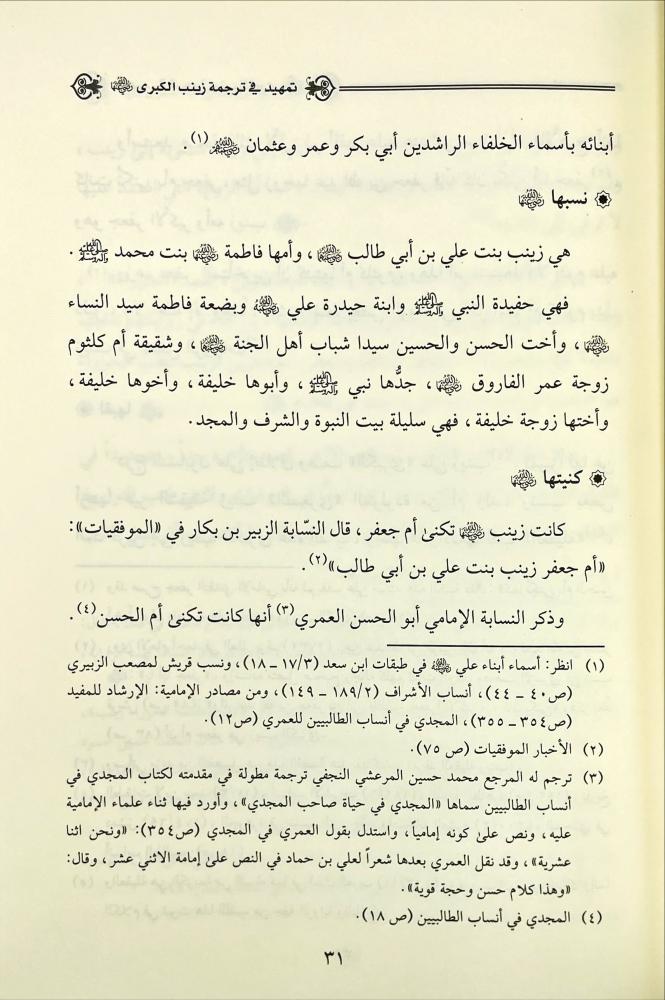 تمهيد في ترجمة زينب الكبرى رضي الله عنها
أبنائه بأسماء الخلفاء الراشدين أبي بكر وعمر وعثمان رضي الله عنهم(١).
نسبها رضي الله عنها
هي زينب بنت علي بن أبي طالب رضي الله عنهما، وأمها فاطمة رضي الله عنها بنت محمد ﷺ.
فهي حفيدة النبي ﷺ وابنة حيدرة علي رضي الله عنه وبضعة فاطمة سيد النساء
رضي الله عنها، وأخت الحسن والحسين سيدا شباب أهل الجنة رضي الله عنهما، وشقيقة أم كلثوم
زوجة عمر الفاروق رضي الله عنها، جدُّها نبي ﷺ، وأبوها خليفة، وأخوها خليفة،
وأختها زوجة خليفة، فهي سليلة بيت النبوة والشرف والمجد.
كنيتها رضي الله عنها
كانت زينب رضي الله عنها تكنىٰ أم جعفر، قال النسّابة الزبير بن بكار في «الموفقيات»:
«أم جعفر زينب بنت علي بن أبي طالب»(٢).
وذكر النسابة الإمامي أبو الحسن العمري(٣) أنها كانت تكنىٰ أم الحسن(٤).
(١) انظر: أسماء أبناء علي رضي الله عنه في طبقات ابن سعد (١٧/٣ – ١٨)، ونسب قريش لمصعب الزبيري
(ص٤٠ – ٤٤)، أنساب الأشراف (١٨٩/٢ – ١٤٩)، ومن مصادر الإمامية: الإرشاد للمفيد
(ص٣٥٤ – ٣٥٥)، المجدي في أنساب الطالبيين للعمري (ص١٢).
(٢) الأخبار الموفقيات (ص ٧٥).
(٣) ترجم له المرجع محمد حسين المرعشي النجفي ترجمة مطولة في مقدمته لكتاب المجدي في
أنساب الطالبيين سماها «المجدي في حياة صاحب المجدي»، وأورد فيها ثناء علماء الإمامية
عليه، ونص علىٰ كونه إمامياً، واستدل بقول العمري في المجدي (ص٣٥٤): «ونحن اثنا
عشرية»، وقد نقل العمري بعدها شعراً لعلي بن حماد في النص علىٰ إمامة الاثني عشر، وقال:
«وهذا كلام حسن وحجة قوية».
(٤) المجدي في أنساب الطالبيين (ص ١٨).
٣١